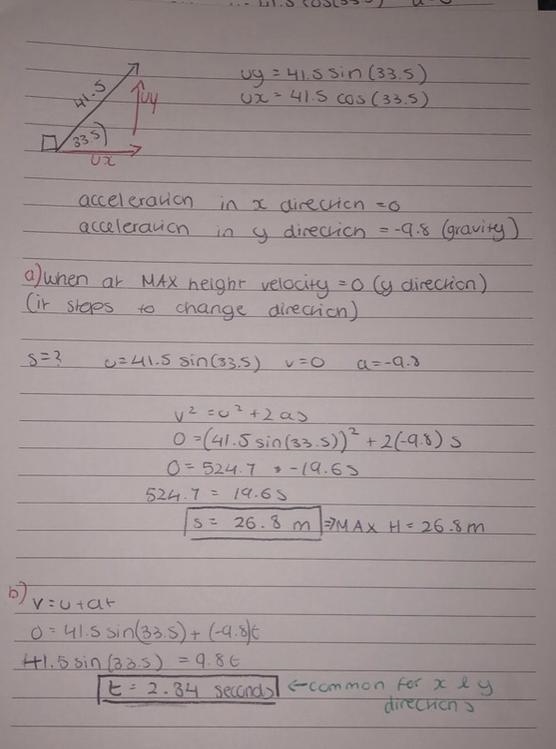 41.5 cos(33.5)
41.5
uy
33.5
ux
uy = 41.5 sin(33.5)
ux = 41.5 cos(33.5)
acceleration in x direction = 0
acceleration in y direction = -9.8 (gravity)
a) when at MAX height velocity = 0 (y direction)
(it stops to change direction)
s=? u=41.5 sin(33.5) v=0 a=-9.8
v² = u² + 2as
0 = (41.5 sin(33.5))² + 2(-9.8) s
0 = 524.7 -19.6s
524.7 = 19.6s
s = 26.8 m ⇒ MAX H = 26.8m
b)
v = u + at
0 = 41.5 sin(33.5) + (-9.8)t
41.5 sin(33.5) = 9.8t
t = 2.34 seconds ← common for x & y
directions